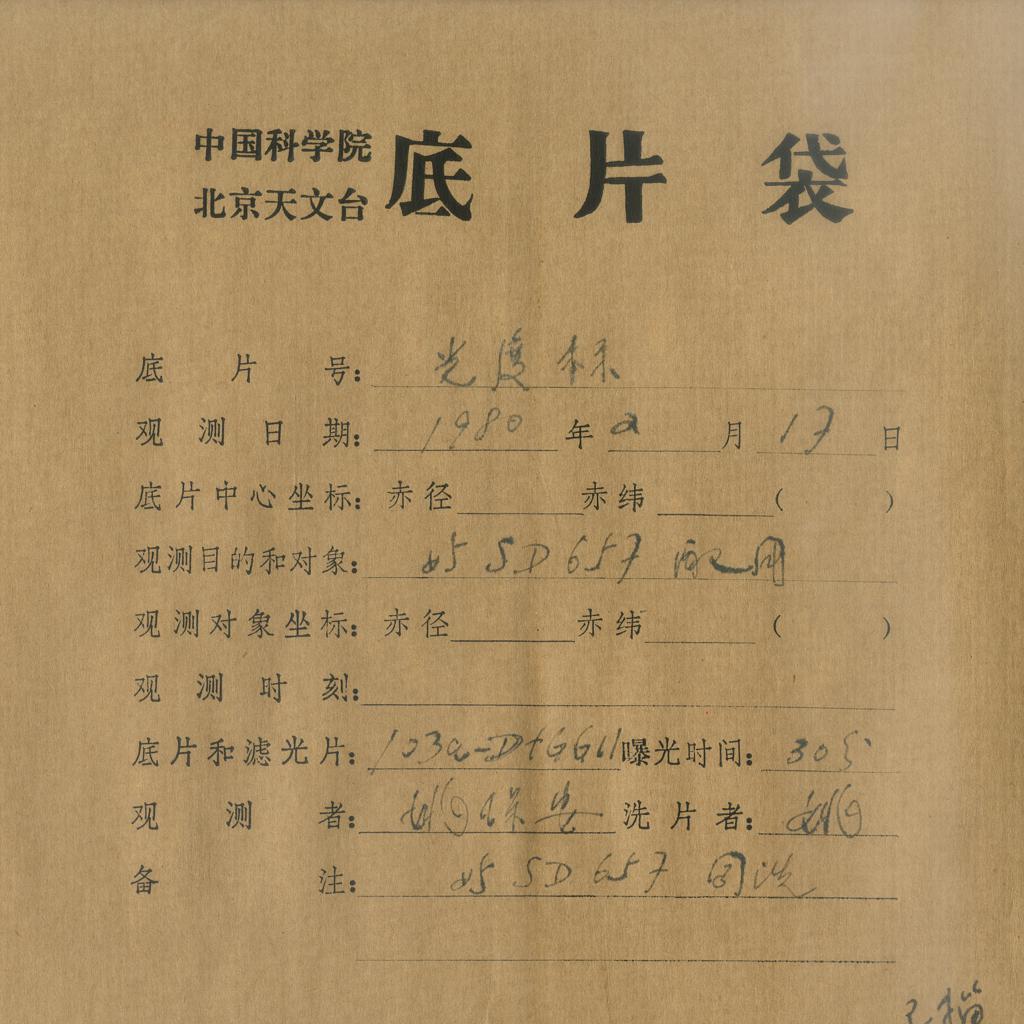 中国科学院
北京天文台 底片袋
底片号：光度标
观测日期：1980年2月17日
底片中心坐标：赤径 赤纬 （ ）
观测目的和对象：与SD657配用
观测对象坐标：赤径 赤纬 （ ）
观测时刻：
底片和滤光片：103a-D+GG11 曝光时间：30分
观测者：姚保安 洗片者：姚
备注：与SD657同洗
已扫描